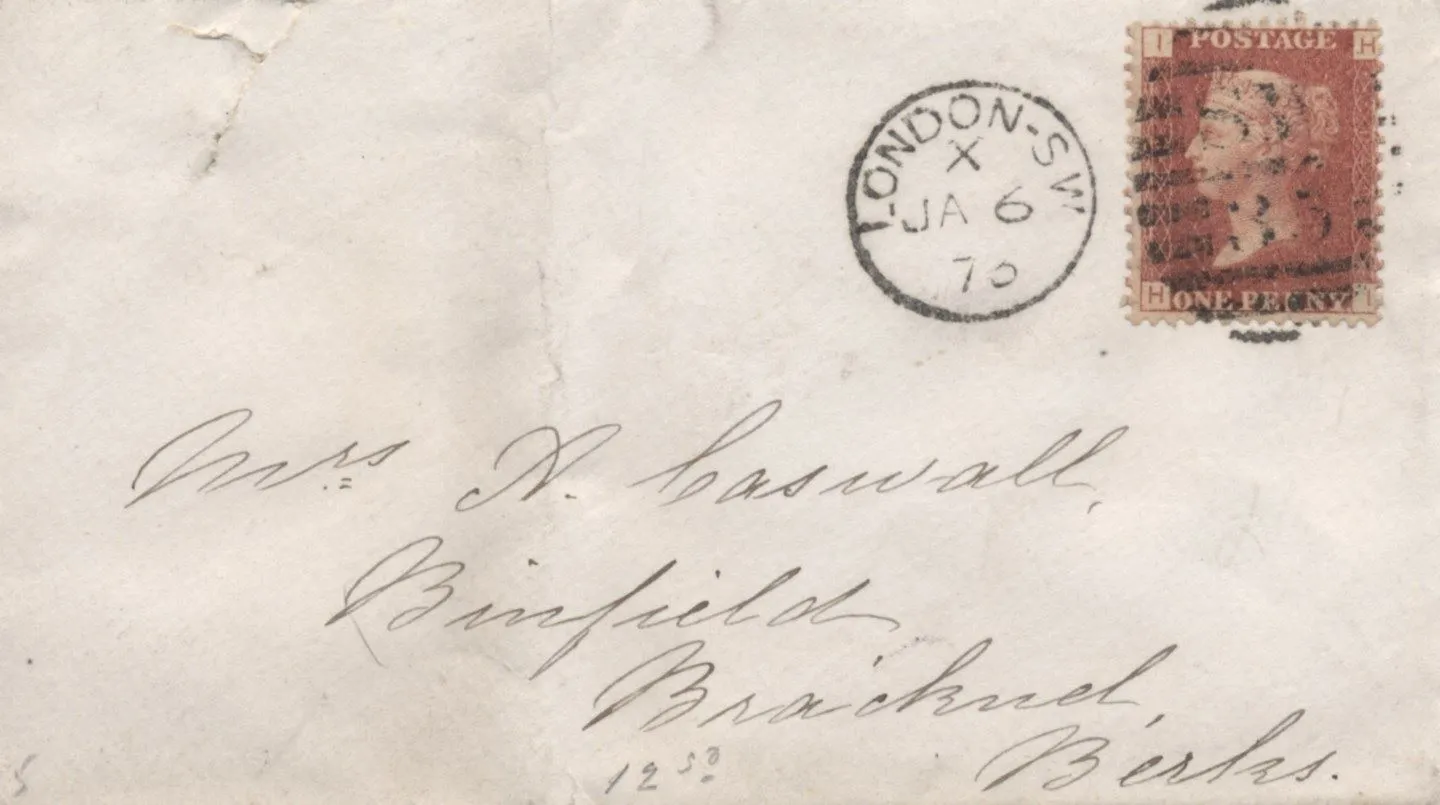 I POSTAGE H
LONDON-SW
X
JA 6
70
H ONE PENNY I
Mrs. A. Caswall,
Binfield,
Bracknel,
Berks.
12 50